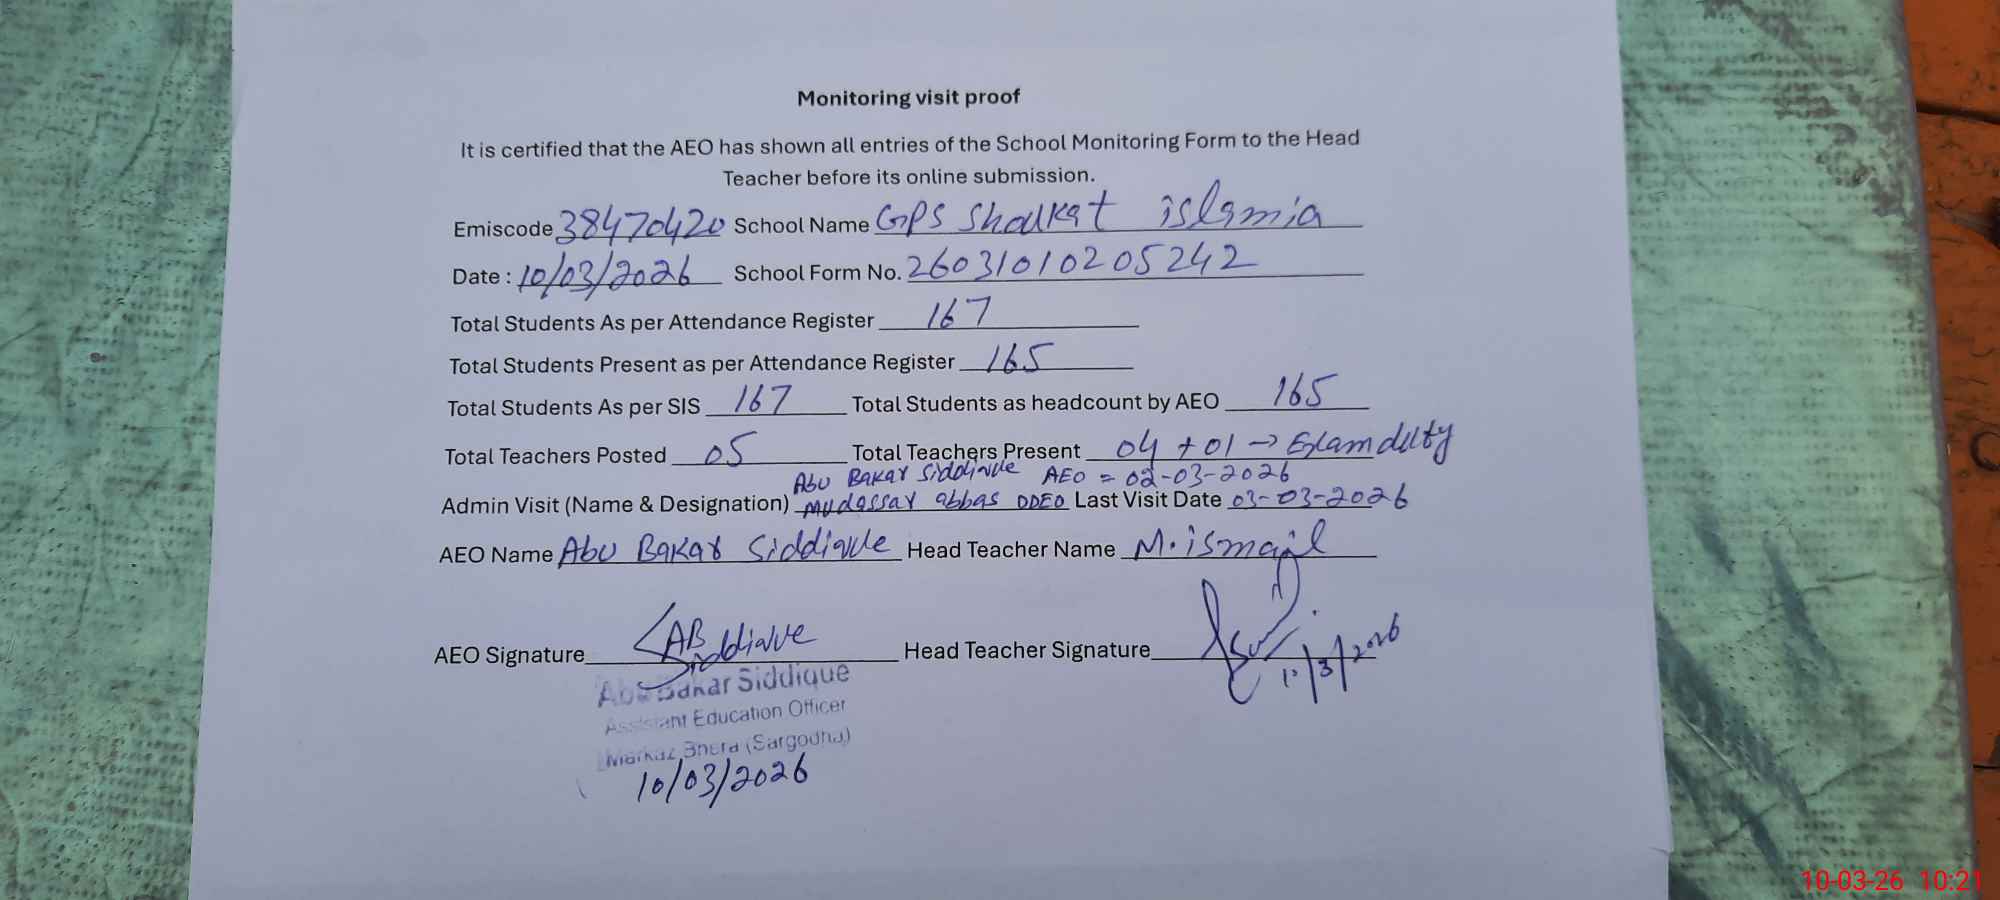 Monitoring visit proof
It is certified that the AEO has shown all entries of the School Monitoring Form to the Head
Teacher before its online submission.
Emiscode 38470420 School Name GPS Shoukat islamia
Date : 10/03/2026 School Form No. 26031010205242
Total Students As per Attendance Register 167
Total Students Present as per Attendance Register 165
Total Students As per SIS 167 Total Students as headcount by AEO 165
Total Teachers Posted 05 Total Teachers Present 04 + 01 → Exam duty
Abu Bakar Siddique AEO = 02-03-2026
Admin Visit (Name & Designation) mudassar abbas DDEO Last Visit Date 03-03-2026
AEO Name Abu Bakar Siddique Head Teacher Name M. ismail
AEO Signature AB Siddique Head Teacher Signature
10/3/2026
Abu Bakar Siddique
Assistant Education Officer
Markaz Bhera (Sargodha)
10/03/2026
10-03-26 10:21